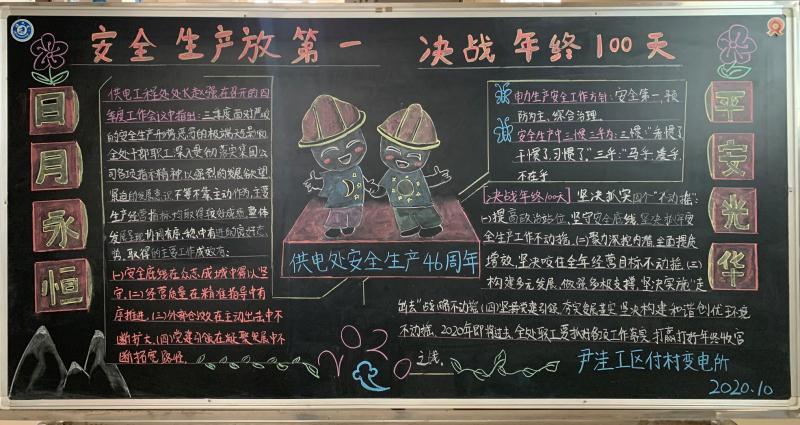 安全生产放第一 决战年终100天
日月永恒
供电工程处处长赵强在8月的四
年度工作会议中指出:三季度面对严峻
的安全生产形势
全处干部职工深入贯彻落实集团公
司各项指示精神以强烈的发展欲望
不等不靠主动作为,主要
生产经营指标均取得较好成绩,整体
发展呈现
势,取得的主要工作成效有:
(一)安全底线在众志成城中得以坚
守,(二)经营质量在精准指导中有
序推进,(三)外部创效在主动出击中不
断扩大,(四)党建引领在凝聚发展中不
断拓宽路径。
供电处安全生产46周年
电力生产安全工作方针:安全第一,预
防为主、综合治理。
安全生产中三惯三乎为:三惯:“看惯了
干惯了,习惯了”,三乎:“马乎,差乎,
不在乎
【决战年终100天】坚决扑实四个“不动摇”:
(一)提高政治站位,坚守安全底线,坚决抓牢安
全生产工作不动摇,(二)聚力深挖内潜,全面提质
增效,坚决咬住全年经营目标不动摇,(三)
构建多元发展,做强多极支撑,坚决实施“走
出去”战略不动摇,(四)坚持党建引领,夯实发展基实,坚决构建和谐创优环境
不动摇。2020年即将过去,全处职工要抓好各项工作落实,打赢打好年终收官
之战。
平安光华
2020
尹洼工区付村变电所
2020.10